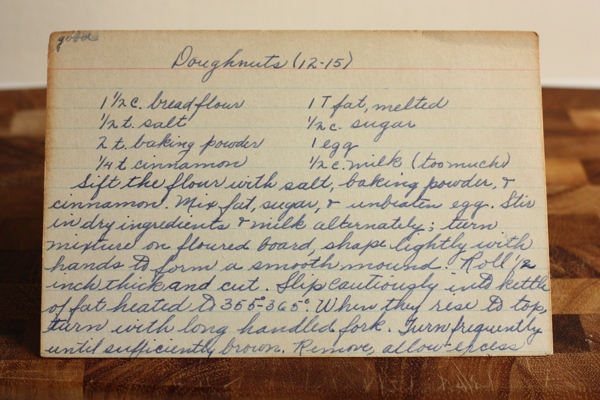 good
Doughnuts (12-15)
1 1/2 c. bread flour 1 T fat, melted
1/2 t. salt 1/2 c. sugar
2 t. baking powder 1 egg
1/4 t cinnamon 1/2 c. milk (too much)
Sift the flour with salt, baking powder, &
cinnamon. Mix fat, sugar, & unbeaten egg. Stir
in dry ingredients & milk alternately; turn
mixture on floured board, shape lightly with
hands to form a smooth mound. Roll 1/2
inch thick and cut. Slip cautiously into kettle
of fat heated to 355°-365°. When they rise to top,
turn with long handled fork. Turn frequently
until sufficiently brown. Remove, allow excess